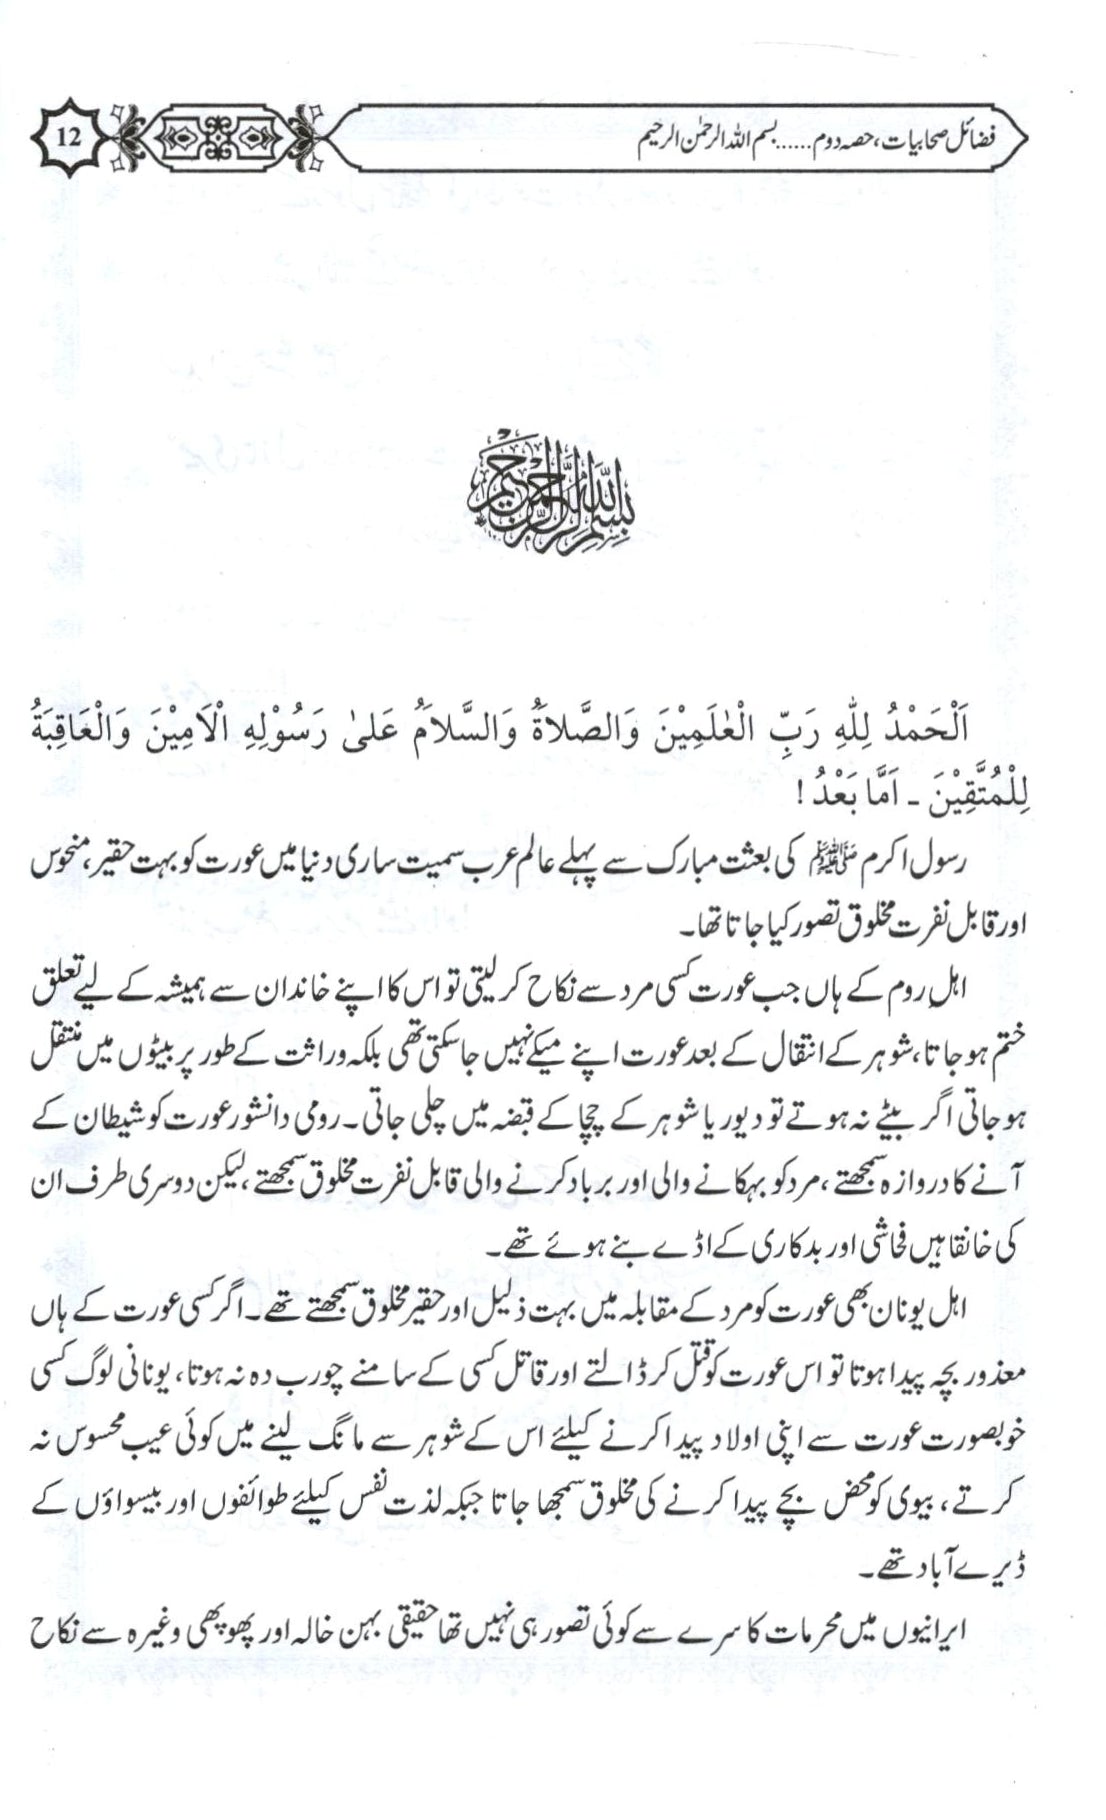 فضائل صحابیات، حصہ دوم......بسم اللہ الرحمٰن الرحیم
12
بِسْمِ اللهِ الرَّحْمٰنِ الرَّحِيْمِ
اَلْحَمْدُ لِلّٰهِ رَبِّ الْعٰلَمِيْنَ وَالصَّلاَةُ وَالسَّلاَمُ عَلىٰ رَسُوْلِهِ الْاَمِيْنَ وَالْعَاقِبَةُ
لِلْمُتَّقِيْنَ ـ اَمَّا بَعْدُ !
رسول اکرم ﷺ کی بعثت مبارک سے پہلے عالم عرب سمیت ساری دنیا میں عورت کو بہت حقیر، منحوس
اور قابل نفرت مخلوق تصور کیا جاتا تھا۔
اہلِ روم کے ہاں جب عورت کسی مرد سے نکاح کر لیتی تو اس کا اپنے خاندان سے ہمیشہ کے لیے تعلق
ختم ہو جاتا، شوہر کے انتقال کے بعد عورت اپنے میکے نہیں جاسکتی تھی بلکہ وراثت کے طور پر بیٹوں میں منتقل
ہو جاتی اگر بیٹے نہ ہوتے تو دیور یا شوہر کے چچا کے قبضہ میں چلی جاتی۔ رومی دانشور عورت کو شیطان کے
آنے کا دروازہ سمجھتے، مرد کو بہکانے والی اور برباد کرنے والی قابل نفرت مخلوق سمجھتے، لیکن دوسری طرف ان
کی خانقاہیں فحاشی اور بدکاری کے اڈے بنے ہوئے تھے۔
اہل یونان بھی عورت کو مرد کے مقابلہ میں بہت ذلیل اور حقیر مخلوق سمجھتے تھے۔ اگر کسی عورت کے ہاں
معذور بچہ پیدا ہوتا تو اس عورت کو قتل کر ڈالتے اور قاتل کسی کے سامنے جورب دہ نہ ہوتا، یونانی لوگ کسی
خوبصورت عورت سے اپنی اولاد پیدا کرنے کیلئے اس کے شوہر سے مانگ لینے میں کوئی عیب محسوس نہ
کرتے، بیوی کو محض بچے پیدا کرنے کی مخلوق سمجھا جاتا جبکہ لذت نفس کیلئے طوائفوں اور بیسواؤں کے
ڈیرے آباد تھے۔
ایرانیوں میں محرمات کا سرے سے کوئی تصور ہی نہیں تھا حقیقی بہن خالہ اور پھوپھی وغیرہ سے نکاح